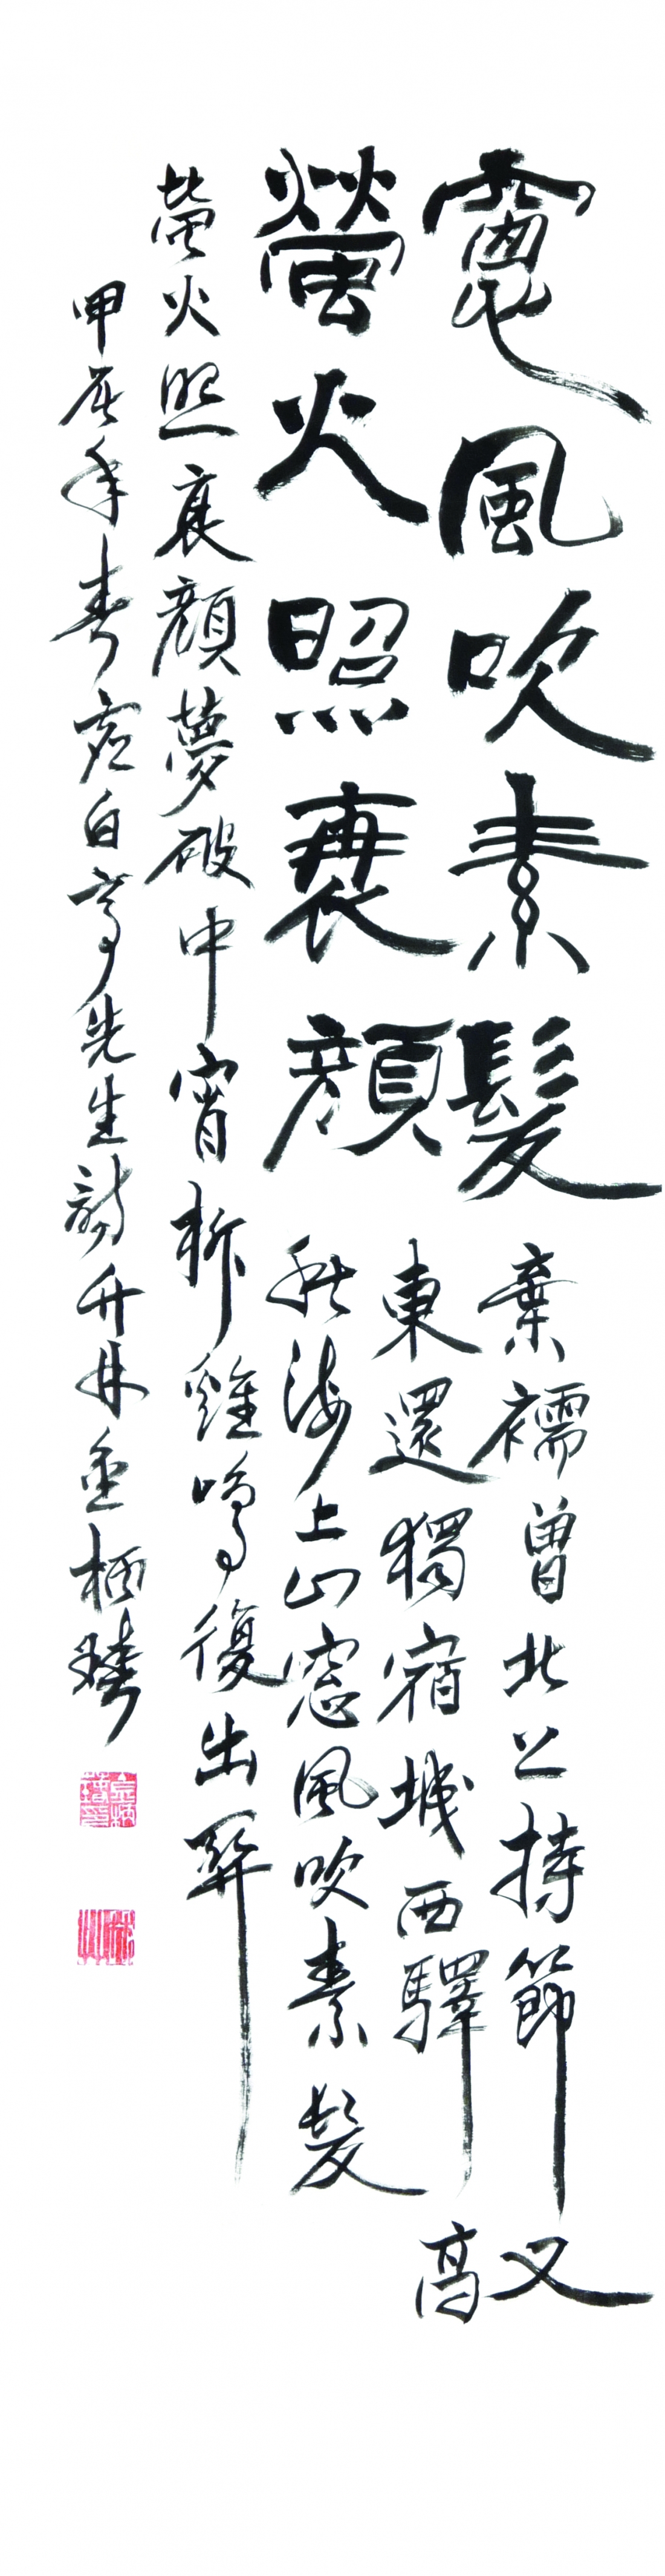 窻風吹素髮
螢火照衰顏
棄襦曾北上持節又
東還獨宿城西驛高
秋海上山窓風吹素髮
螢火照衰顏夢破中宵柝雞鳴復出關
甲辰年春虛白亭先生詩竹林金柄